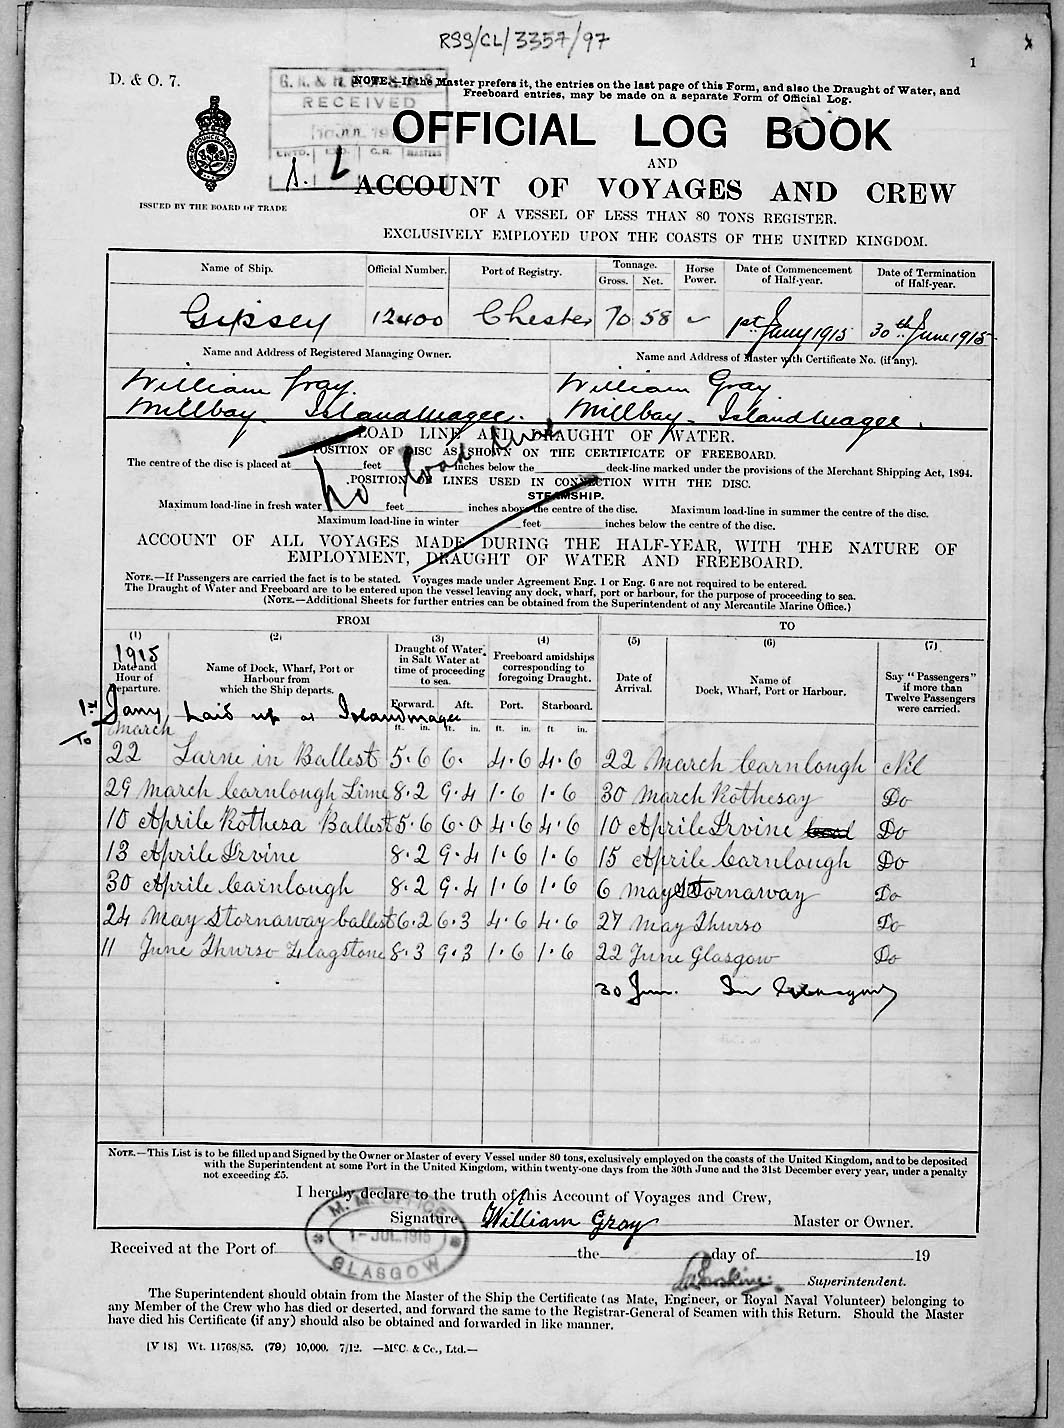 RSS/CL/3357/97
1
D. & O. 7.
NOTE.—If the Master prefers it, the entries on the last page of this Form, and also the Draught of Water, and
Freeboard entries, may be made on a separate Form of Official Log.
RECEIVED
OFFICIAL LOG BOOK
AND
ACCOUNT OF VOYAGES AND CREW
ISSUED BY THE BOARD OF TRADE
OF A VESSEL OF LESS THAN 80 TONS REGISTER.
EXCLUSIVELY EMPLOYED UPON THE COASTS OF THE UNITED KINGDOM.
Name of Ship. Official Number. Port of Registry. Tonnage. Gross. Net. Horse Power. Date of Commencement of Half-year. Date of Termination of Half-year.
Gipsey 12400 Chester 70 58 1st Jany 1915 30th June 1915
Name and Address of Registered Managing Owner. Name and Address of Master with Certificate No. (if any).
William Gray William Gray
Millbay Islandmagee. Millbay Islandmagee.
LOAD LINE AND DRAUGHT OF WATER.
POSITION OF DISC AS SHOWN ON THE CERTIFICATE OF FREEBOARD.
The centre of the disc is placed at feet inches below the deck-line marked under the provisions of the Merchant Shipping Act, 1894.
No load line
POSITION OF LINES USED IN CONNECTION WITH THE DISC.
STEAMSHIP.
Maximum load-line in fresh water feet inches above the centre of the disc. Maximum load-line in summer the centre of the disc.
Maximum load-line in winter feet inches below the centre of the disc.
ACCOUNT OF ALL VOYAGES MADE DURING THE HALF-YEAR, WITH THE NATURE OF
EMPLOYMENT, DRAUGHT OF WATER AND FREEBOARD.
NOTE.—If Passengers are carried the fact is to be stated. Voyages made under Agreement Eng. 1 or Eng. 6 are not required to be entered.
The Draught of Water and Freeboard are to be entered upon the vessel leaving any dock, wharf, port or harbour, for the purpose of proceeding to sea.
(NOTE.—Additional Sheets for further entries can be obtained from the Superintendent of any Mercantile Marine Office.)
FROM TO
(1) (2) (3) (4) (5) (6) (7)
1915
Date and Hour of Departure. Name of Dock, Wharf, Port or Harbour from which the Ship departs. Draught of Water in Salt Water at time of proceeding to sea. Freeboard amidships corresponding to foregoing Draught. Date of Arrival. Name of Dock, Wharf, Port or Harbour. Say "Passengers" if more than Twelve Passengers were carried.
Forward. Aft. Port. Starboard.
1st Jany, Laid up at Islandmagee
ft. in. ft. in. ft. in. ft in.
To March
22 Larne in Ballest 5.6 6. 4.6 4.6 22 March Carnlough Nil
29 March Carnlough Lime 8.2 9.4 1.6 1.6 30 March Rothesay Do
10 Aprile Rothesa Ballest 5.6 6.0 4.6 4.6 10 Aprile Irvine Do
13 Aprile Irvine 8.2 9.4 1.6 1.6 15 Aprile Carnlough Do
30 Aprile Carnlough 8.2 9.4 1.6 1.6 6 May Stornaway Do
24 May Stornaway ballest 6.2 6.3 4.6 4.6 27 May Thurso Do
11 June Thurso Flagstone 8.3 9.3 1.6 1.6 22 June Glasgow Do
30 June. In
NOTE.—This List is to be filled up and Signed by the Owner or Master of every Vessel under 80 tons, exclusively employed on the coasts of the United Kingdom, and to be deposited
with the Superintendent at some Port in the United Kingdom, within twenty-one days from the 30th June and the 31st December every year, under a penalty
not exceeding £5.
I hereby declare to the truth of this Account of Voyages and Crew,
Signature William Gray Master or Owner.
M. M. OFFICE
1 - JUL. 1915
GLASGOW
Received at the Port of the day of 19
Superintendent.
The Superintendent should obtain from the Master of the Ship the Certificate (as Mate, Engineer, or Royal Naval Volunteer) belonging to
any Member of the Crew who has died or deserted, and forward the same to the Registrar-General of Seamen with this Return. Should the Master
have died his Certificate (if any) should also be obtained and forwarded in like manner.
[V 18] Wt. 11768/85. (79) 10,000. 7/12. —McC. & Co., Ltd.—